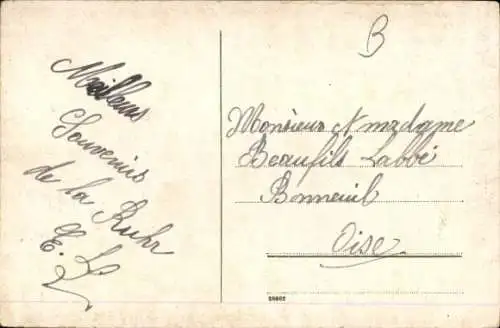 B
Meilleurs
Souvenirs
de la Ruhr
E. L
Monsieur & madame
Beaufils Labbé
Bonneuil
Oise